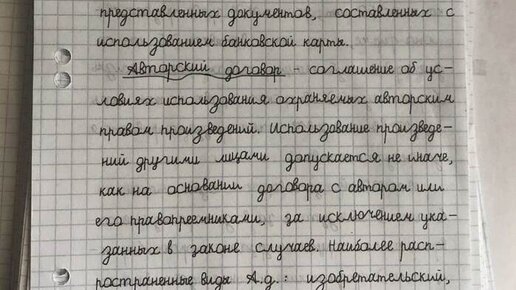 представленных документов, составленных с
использованием банковской карты.
Авторский договор - соглашение об ус-
ловиях использования охраняемых авторским
правом произведений. Использование произведе-
ний другими лицами допускается не иначе,
как на основании договора с автором или
его правопреемниками, за исключением ука-
занных в законе случаев. Наиболее расп-
ространенные виды А.д.: изобретательский,